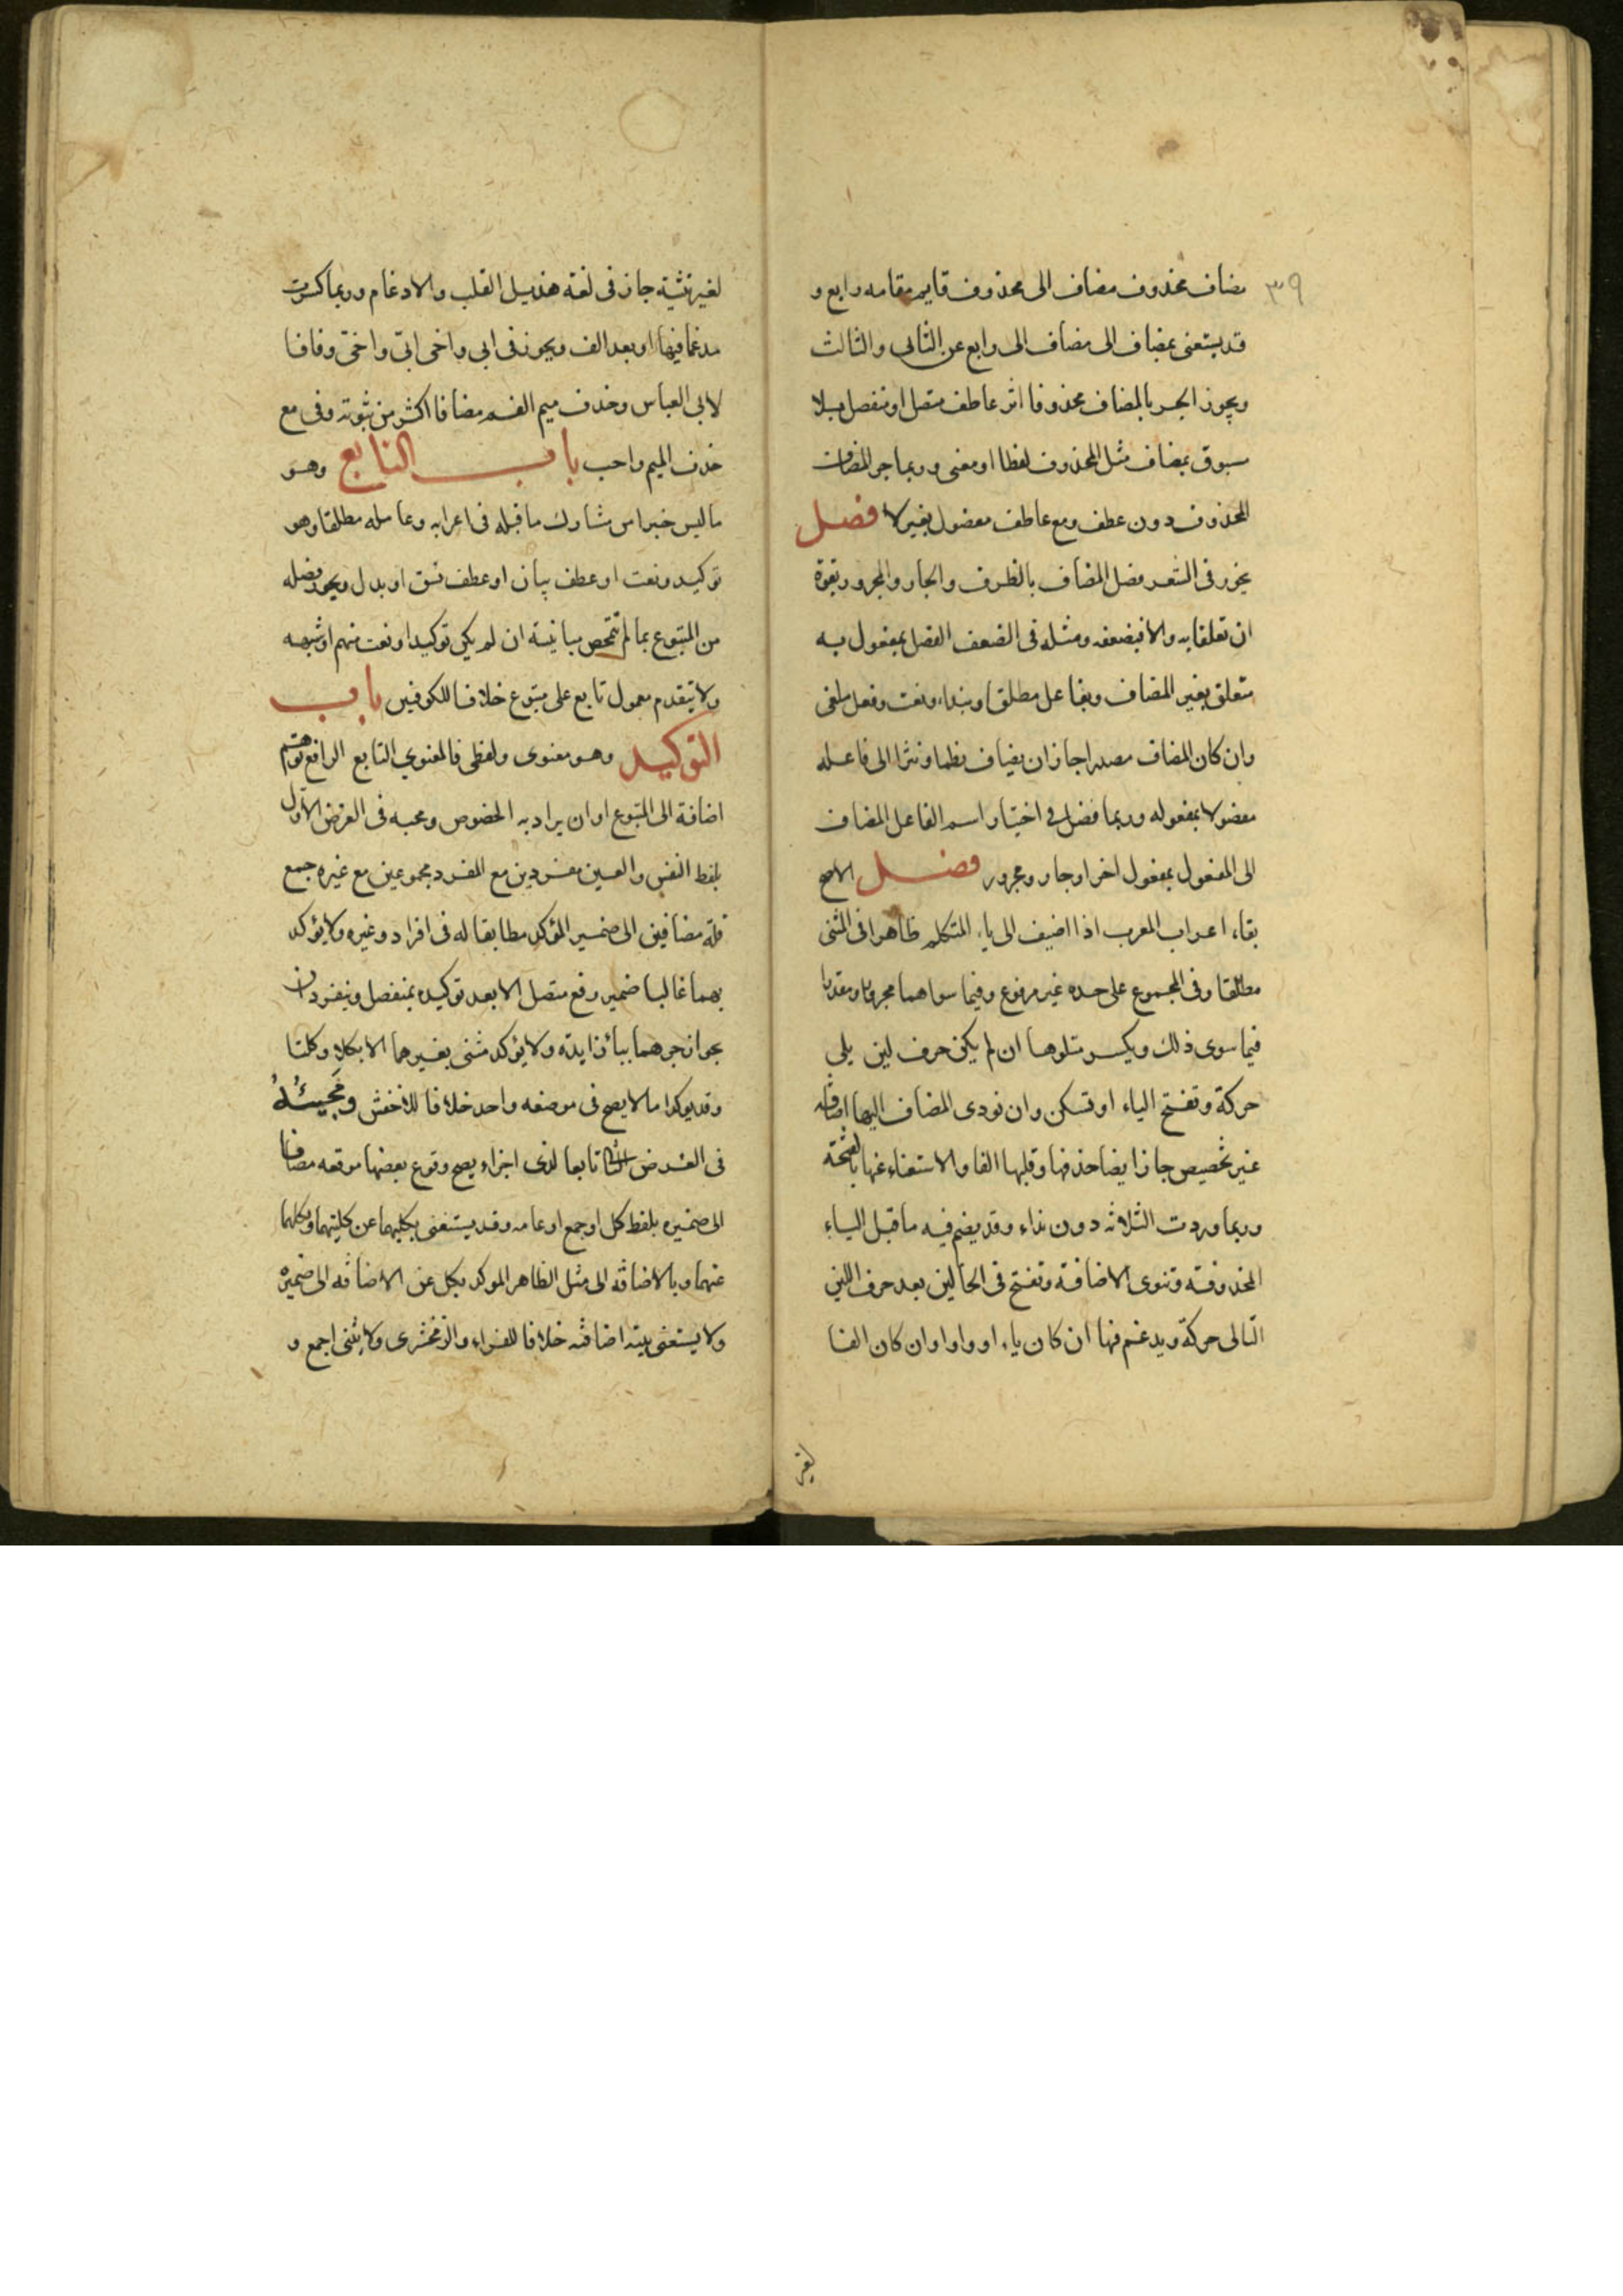 ٣٩
مضاف محذوف مضاف الى محذوف قايم مقامه رابع و
قد يستغنى بمضاف الى مضاف الى رابع عن الثانى والثالث
ويجوز الجر بالمضاف محذوفا اثر عاطف متصل او منفصل بلا
مسبوق بمضاف مثل المحذوف لفظا او معنى وربما جر المضاف
المحذوف دون عطف ومع عاطف مفصول بغير لا فصل
يجوز فى الشعر فصل المضاف بالظرف والجار والمجرور بقوة
ان تعلقا به والا فبضعف ومثله فى الضعف الفصل بمفعول به
متعلق بغير المضاف وبفاعل مطلقا وبنداء ونعت وفعل ملغى
وان كان المضاف مصدرا جاز ان يضاف نظما ونثرا الى فاعله
مفصولا بمفعوله وربما فصل فى اختيار اسم الفاعل المضاف
الى المفعول بمفعول اخر او جار ومجرور فصل الاصح
بقاء اعراب المعرب اذا اضيف الى ياء المتكلم ظاهرا فى المثنى
مطلقا وفى المجموع على حده غير مرفوع وفيما سواهما مجرورا ومقدرا
فيما سوى ذلك ويكسر متلوها ان لم يكن حرف لين يلى
حركة وتفتح الياء او تسكن وان نودى المضاف اليها اضافة
غير تخصيص جاز ايضا حذفها وقلبها الفا والاستغناء عنها بالفتحة
وربما وردت الثلاثة دون نداء وقد يضم فيه ما قبل الياء
المحذوفة وتنوى الاضافة وتفتح فى الحالين بعد حرف اللين
التالى حركة ويدغم فيها ان كان ياء او واوا وان كان الفا
لغير
لغير تثنية جاز فى لغة هذيل القلب والادغام وربما كسرت
مدغما فيها او بعد الف ويجوز فى ابى واخى ابىّ واخىّ وفاقا
لابى العباس وحذف ميم الفم مضافا اكثر من ثبوته وفى مع
حذف الميم واجب باب التابع وهو
ما ليس خبرا من مشارك ما قبله فى اعرابه وعامله مطلقا وهو
توكيد ونعت او عطف بيان او عطف نسق او بدل ويجوز فصله
من المتبوع بما لم تتمحض مباينته ان لم يكن توكيدا او نعت مبهم او شبهه
ولا يتقدم معمول تابع على متبوع خلافا للكوفيين باب
التوكيد وهو معنوى ولفظى فالمعنوي التابع الرافع توهم
اضافة الى المتبوع او ان يراد به الخصوص ومجيه فى الغرض الاول
بلفظ النفس والعين مفردين مع المفرد مجموعين مع غيره جمع
قلة مضافين الى ضمير المؤكد مطابقا له فى افراد وغيره ولا يؤكد
بهما غالبا ضمير رفع متصل الا بعد توكيده بمنفصل وينفردان
بجواز جرهما بباء زايدة ولا يؤكد مثنى بغيرهما الا بكلا وكلتا
وقد يوكدا ما لا يصح فى موضعه واحد خلافا للاخفش ومَجيئهُ
فى الغرض الثانى تابعا لذى اجزاء يصح وقوع بعضها موقعه مضافا
الى ضميره بلفظ كل او جمع او عامه وقد يستغنى بكليهما عن كلتيهما وبكلهما
عنهما وبالاضافه الى مثل الظاهر الموكد بكل عن الاضافه الى ضميره
ولا يستغنى بنية اضافته خلافا للفراء والزمخشرى ولا يثنى اجمع و